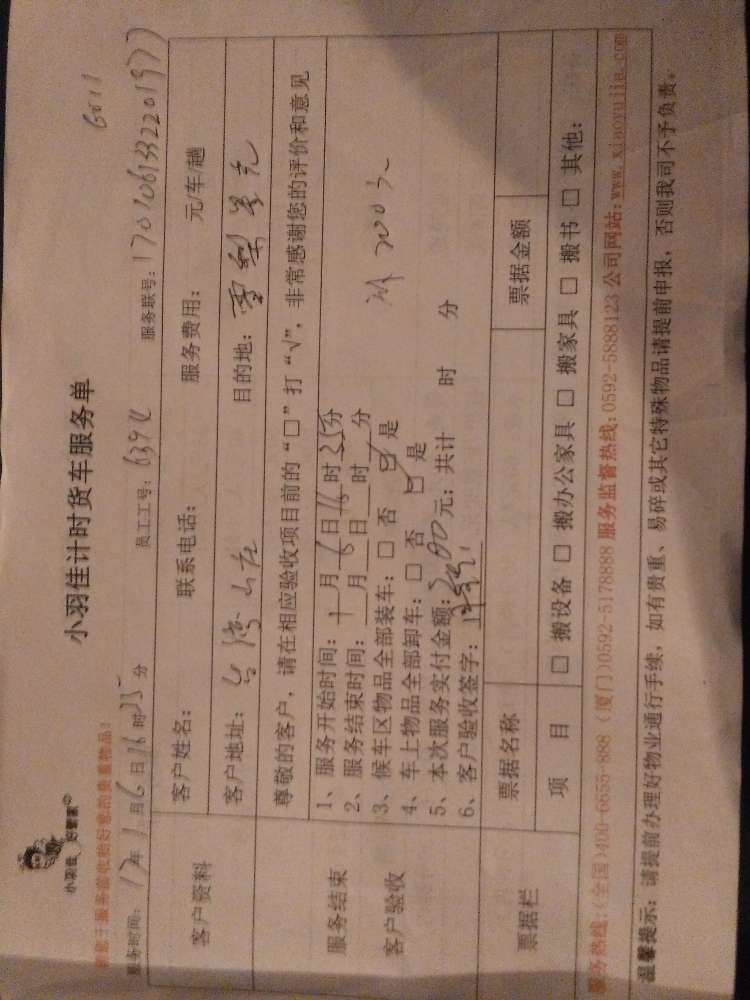 小羽佳 好管家
小羽佳计时货车服务单
6011
请您于服务前收拾好您的贵重物品!
服务时间: 17年 1月 6日 16时 35分 员工工号: 6394 服务联号: 1701061332201977
客户资料
客户姓名: 联系电话: 服务费用: 元/车/趟
客户地址: 目的地:
尊敬的客户,请在相应验收项目前的“□”打“√”,非常感谢您的评价和意见
服务结束
客户验收
1、服务开始时间: 1月6日16时35分
2、服务结束时间: 月 日 时 分
3、候车区物品全部装车: □ 否 ☑ 是
4、车上物品全部卸车: □ 否 ☑ 是
5、本次服务实付金额: 元; 共计 时 分
200元
6、客户验收签字:
票据栏
票据名称 票据金额
项 目 □ 搬设备 □ 搬办公家具 □ 搬家具 □ 搬书 □ 其他:
服务热线:(全国)400-6655-888 (厦门)0592-5178888 服务监督热线:0592-5888123 公司网站:www.xiaoyujie.com
温馨提示: 请提前办理好物业通行手续, 如有贵重、易碎或其它特殊物品请提前申报, 否则我司不予负责。